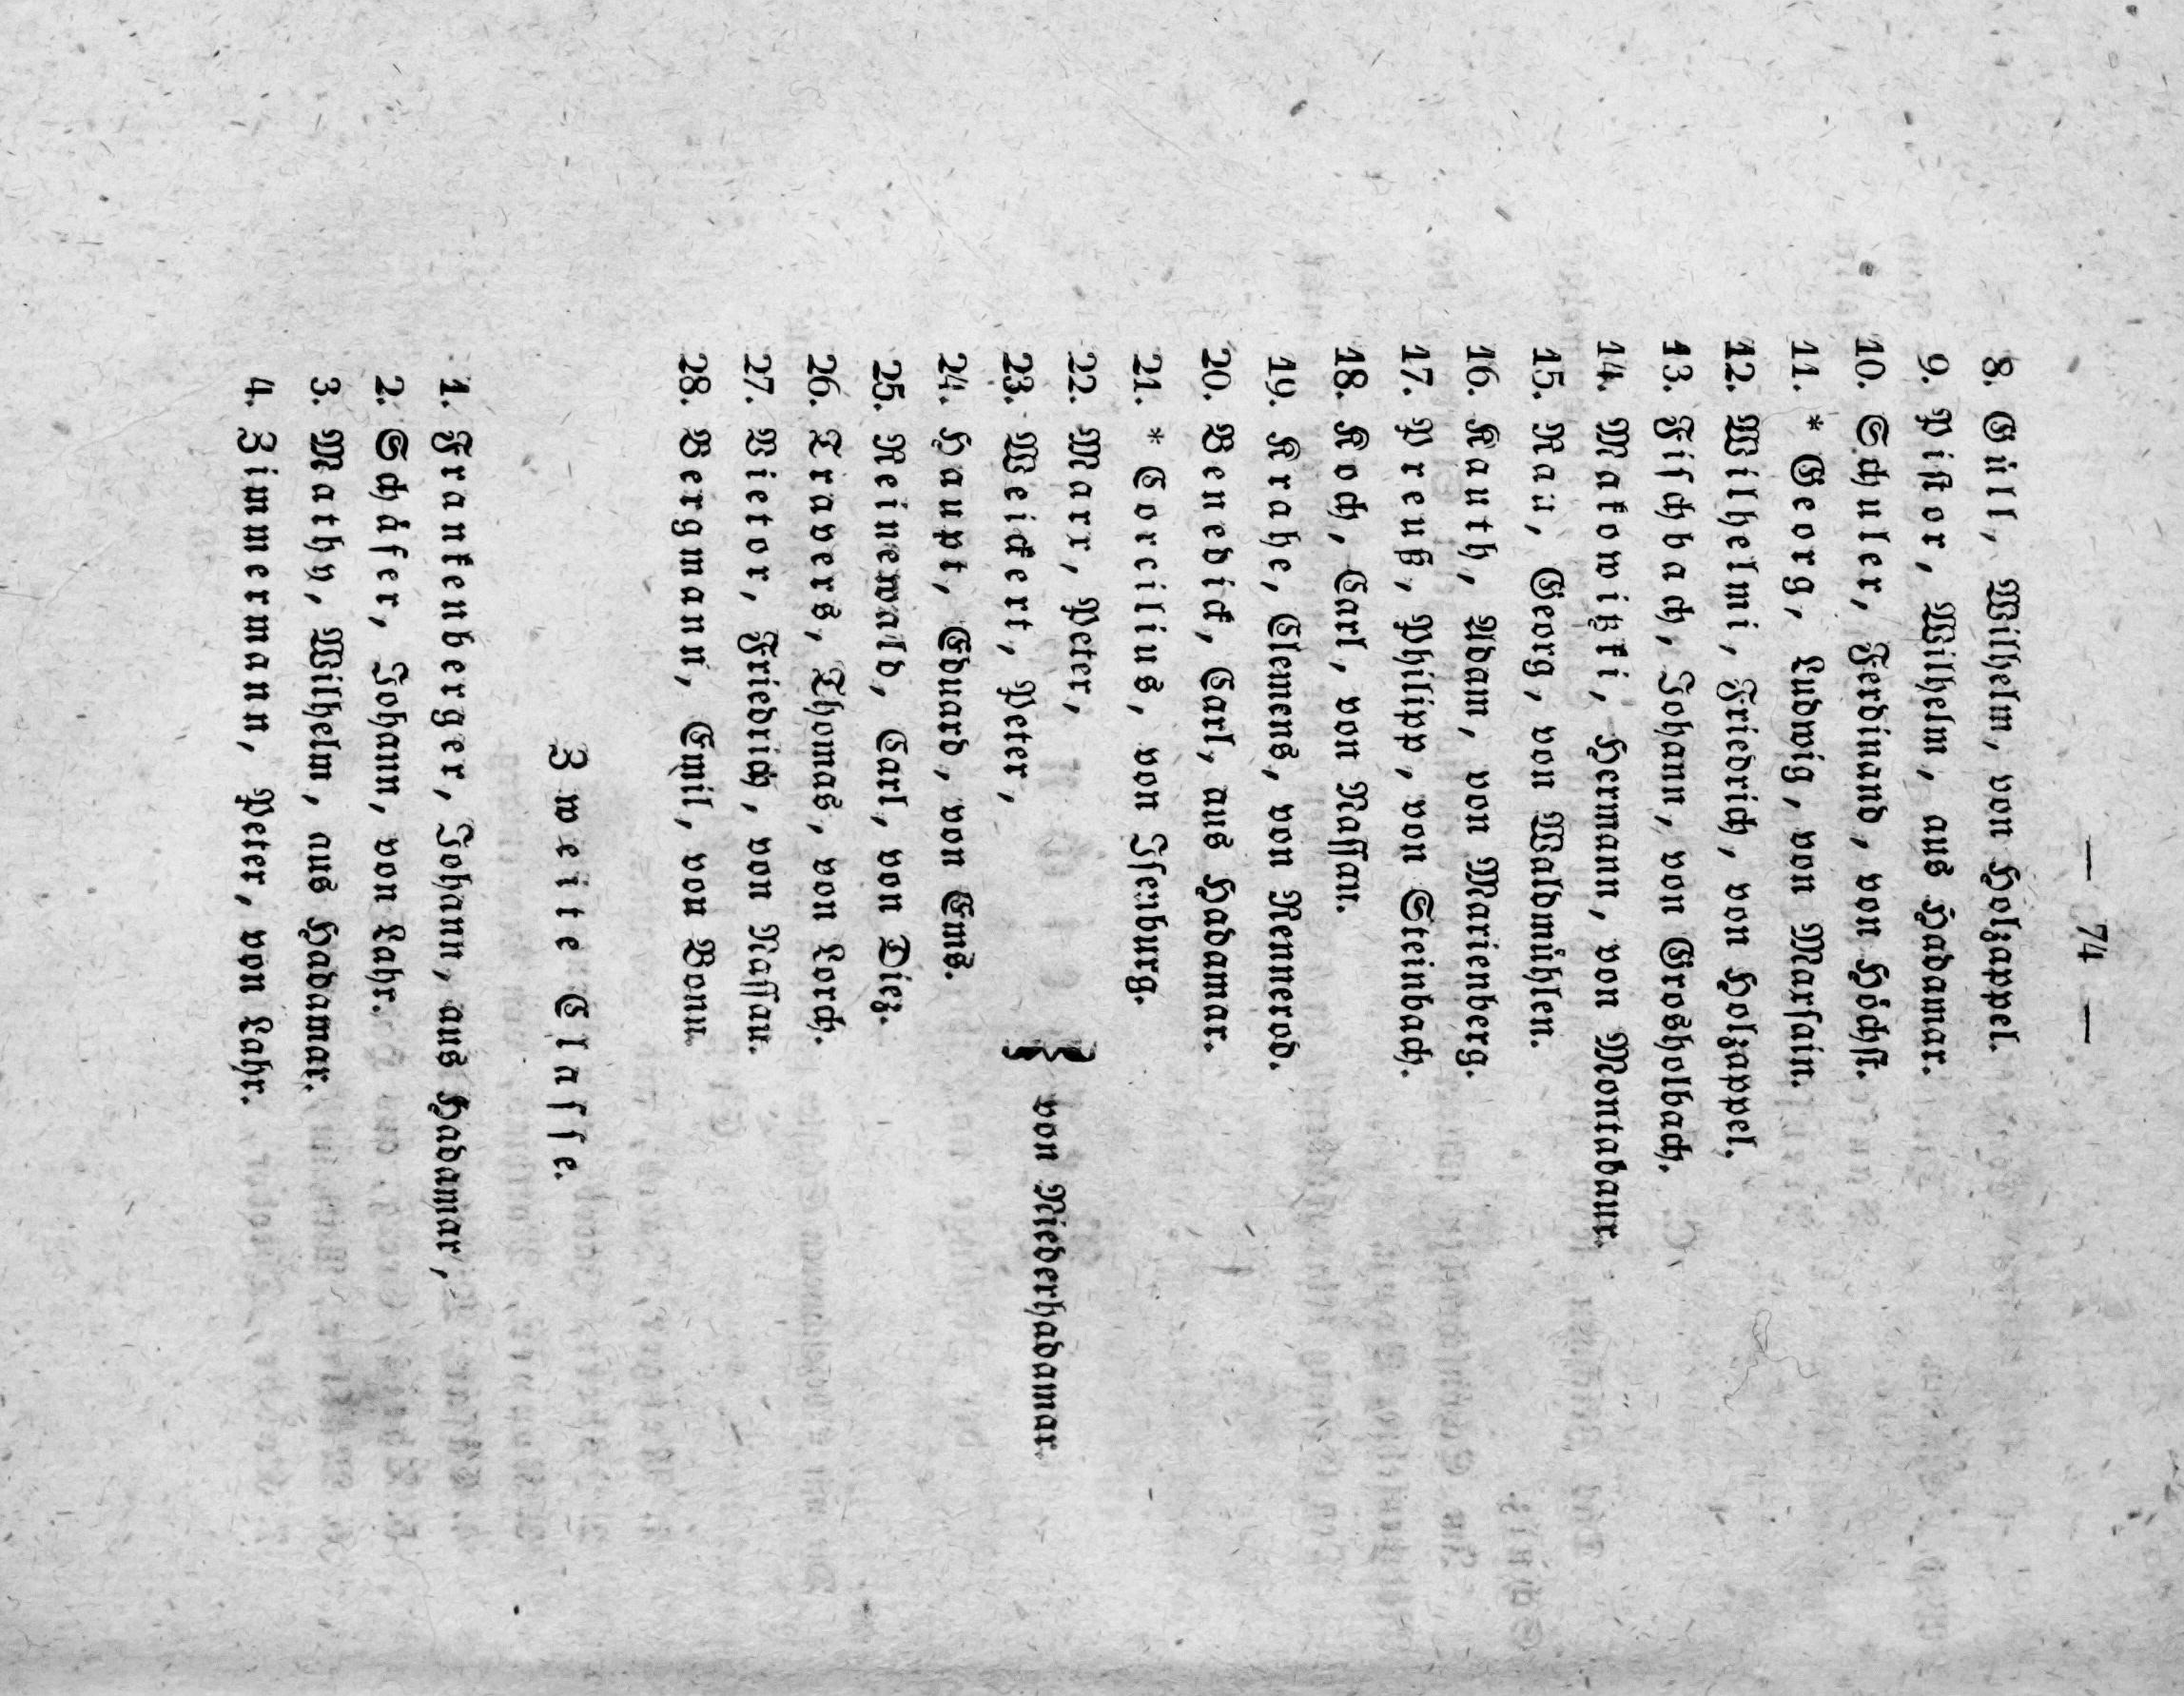 — 74 —
8. Güll, Wilhelm, von Holzappel.
9. Pistor, Wilhelm, aus Hadamar.
10. Schuler, Ferdinand, von Höchst.
11. * Georg, Ludwig, von Marsain.
12. Wilhelmi, Friedrich, von Holzappel.
13. Fischbach, Johann, von Grosholbach.
14. Matowitzki, Hermann, von Montabaur.
15. Rau, Georg, von Waldmühlen.
16. Kauth, Adam, von Marienberg.
17. Preuß, Philipp, von Steinbach.
18. Koch, Carl, von Nassau.
19. Krahe, Clemens, von Rennerod.
20. Benedick, Carl, aus Hadamar.
21. * Corcilius, von Isenburg.
22. Marx, Peter,
23. Weickert, Peter, } von Niederhadamar.
24. Haupt, Eduard, von Ems.
25. Reinewald, Carl, von Diez.
26. Travers, Thomas, von Lorch.
27. Vietor, Friedrich, von Nassau.
28. Bergmann, Emil, von Bonn.
Zweite Classe.
1. Frankenberger, Johann, aus Hadamar,
2. Schäfer, Johann, von Lahr.
3. Mathy, Wilhelm, aus Hadamar.
4. Zimmermann, Peter, von Lahr.